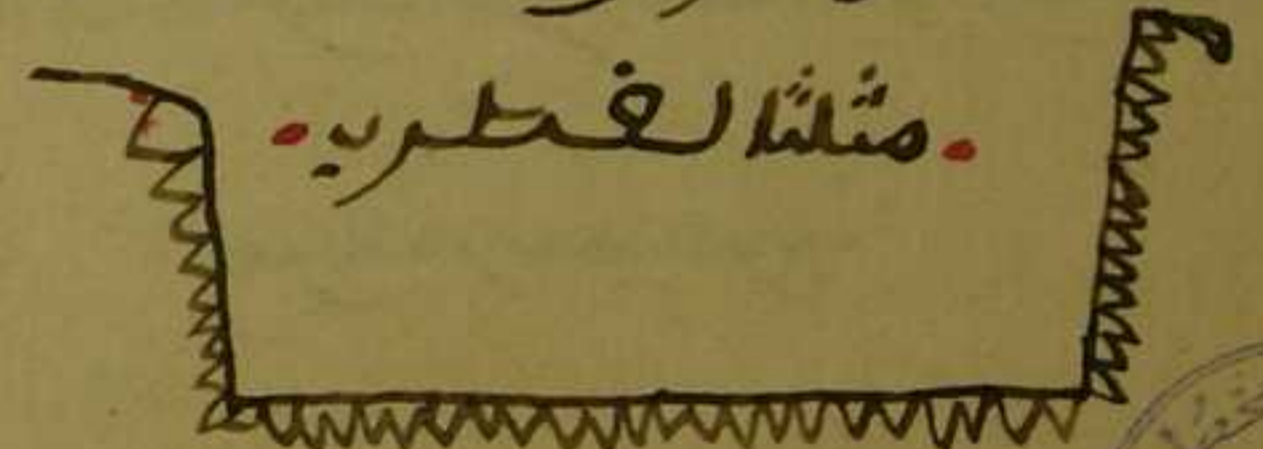 مثلث القطرب